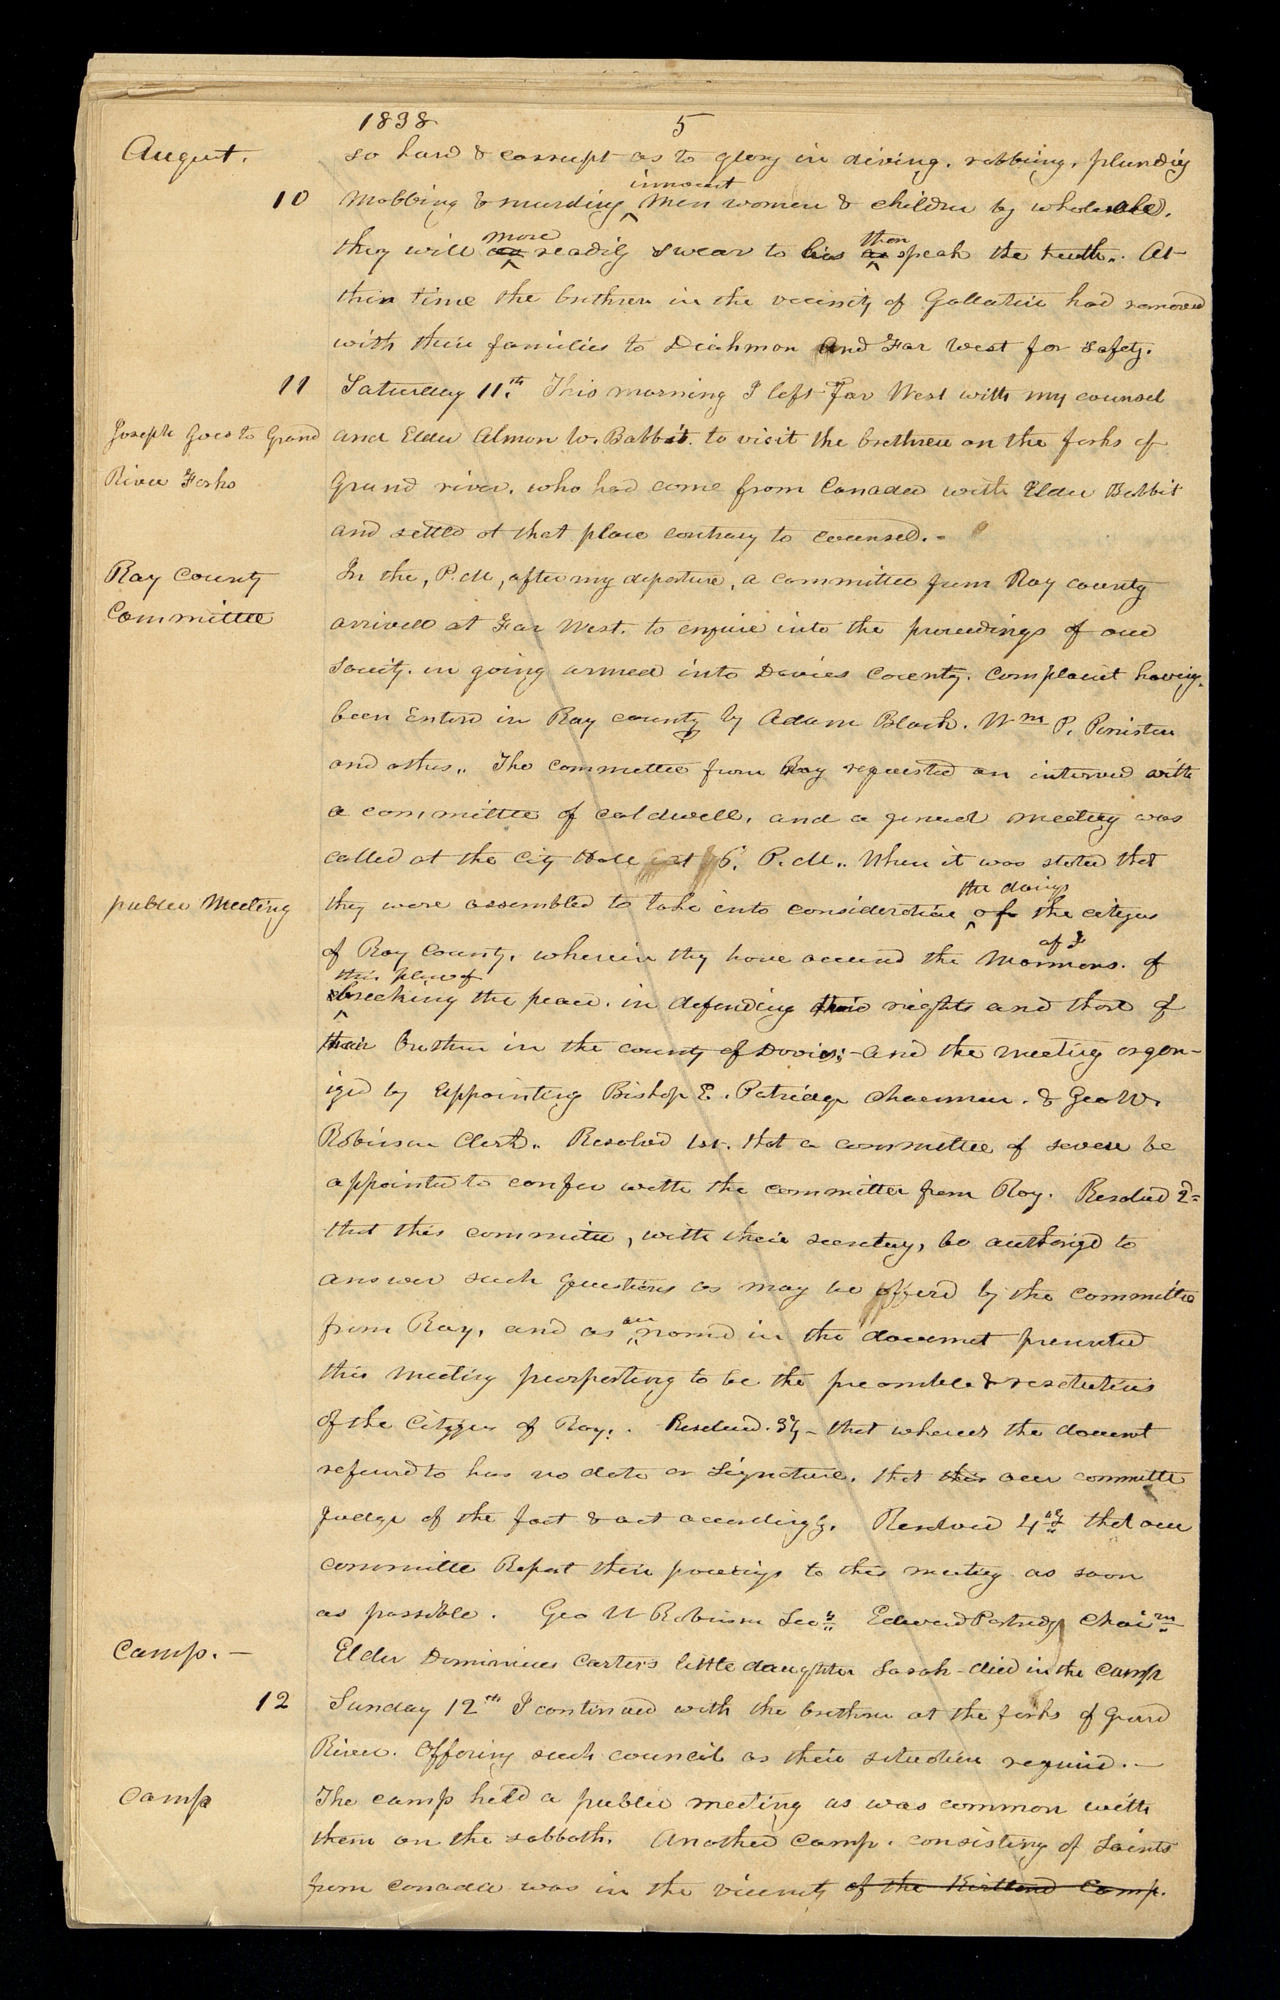 1838
5
August.
so hard & corrupt as to glory in diving, robbing, plundrig
innocent
10 Mobbing & murdirg men women & children by wholesale.
more than
they will as readily swear to lies as speak the truth. At
this time the brethren in the vicinity of Gallatin had removed
with their families to Diahmon And Far West for safety.
11 Saturday 11th. This morning I left Far West with my counsel
Joseph Goes to Grand
and Elder Almon W. Babbit. to visit the brethren on the forks of
River Forks
Grand river. who had come from Canada with Elder Babbit
and settled at that place contrary to counsel. -
Ray County
In the, P.M, after my departure, a committee from Ray county
Committee
arrived at Far West. to enquire into the proceedings of our
Society. in going armed into Davies County. complaint having
been Entered in Ray county by Adam Black. Wm P. Peniston
and others.. The committee from Ray requested an interved with
a committee of caldwell, and a general meeting was
called at the City Hall at 6. P.M.. When it was stated that
the doings
public Meeting
they were assembled to take into consideration of the citizens
of Ray County. wherein they have accused the Mormons. of
this place of
breaking the peace. in defending their rights and those of
their brethren in the county of Davies; - and the meeting organ-
ized by appointing Bishop E. Patridge chairman. & Geo W.
Robinson Clerk.. Resolved 1st. that a committee of seven be
appointed to confer with the committee from Ray. Resolved 2d
that this committee, with their secretary, be authorized to
answer such questions as may be offered by the committee
from Ray, and as are named in the documet presented
this meeting purporting to be the preamble & resolutions
of the Citizens of Ray. Resolved. 3ly - that whereas the documt
referred to has no date or signature. that this our committee
judge of the fact & act accordingly. Resolved 4ly that our
committee Report their procedings to this meeting as soon
as possible. Geo W Robinson Secy Edward Partridge Chairm
Camp. -
Elder Dominicus Carters little daughter Sarah - died in the camp
12 Sunday 12th I continued with the brethren at the forks of Grand
River. Offering such council as their situation required. -
Camp
The camp held a public meeting as was common with
them on the sabbath. Another camp. consisting of Saints
from Canada was in the vicinity of the Kirtland Camp.